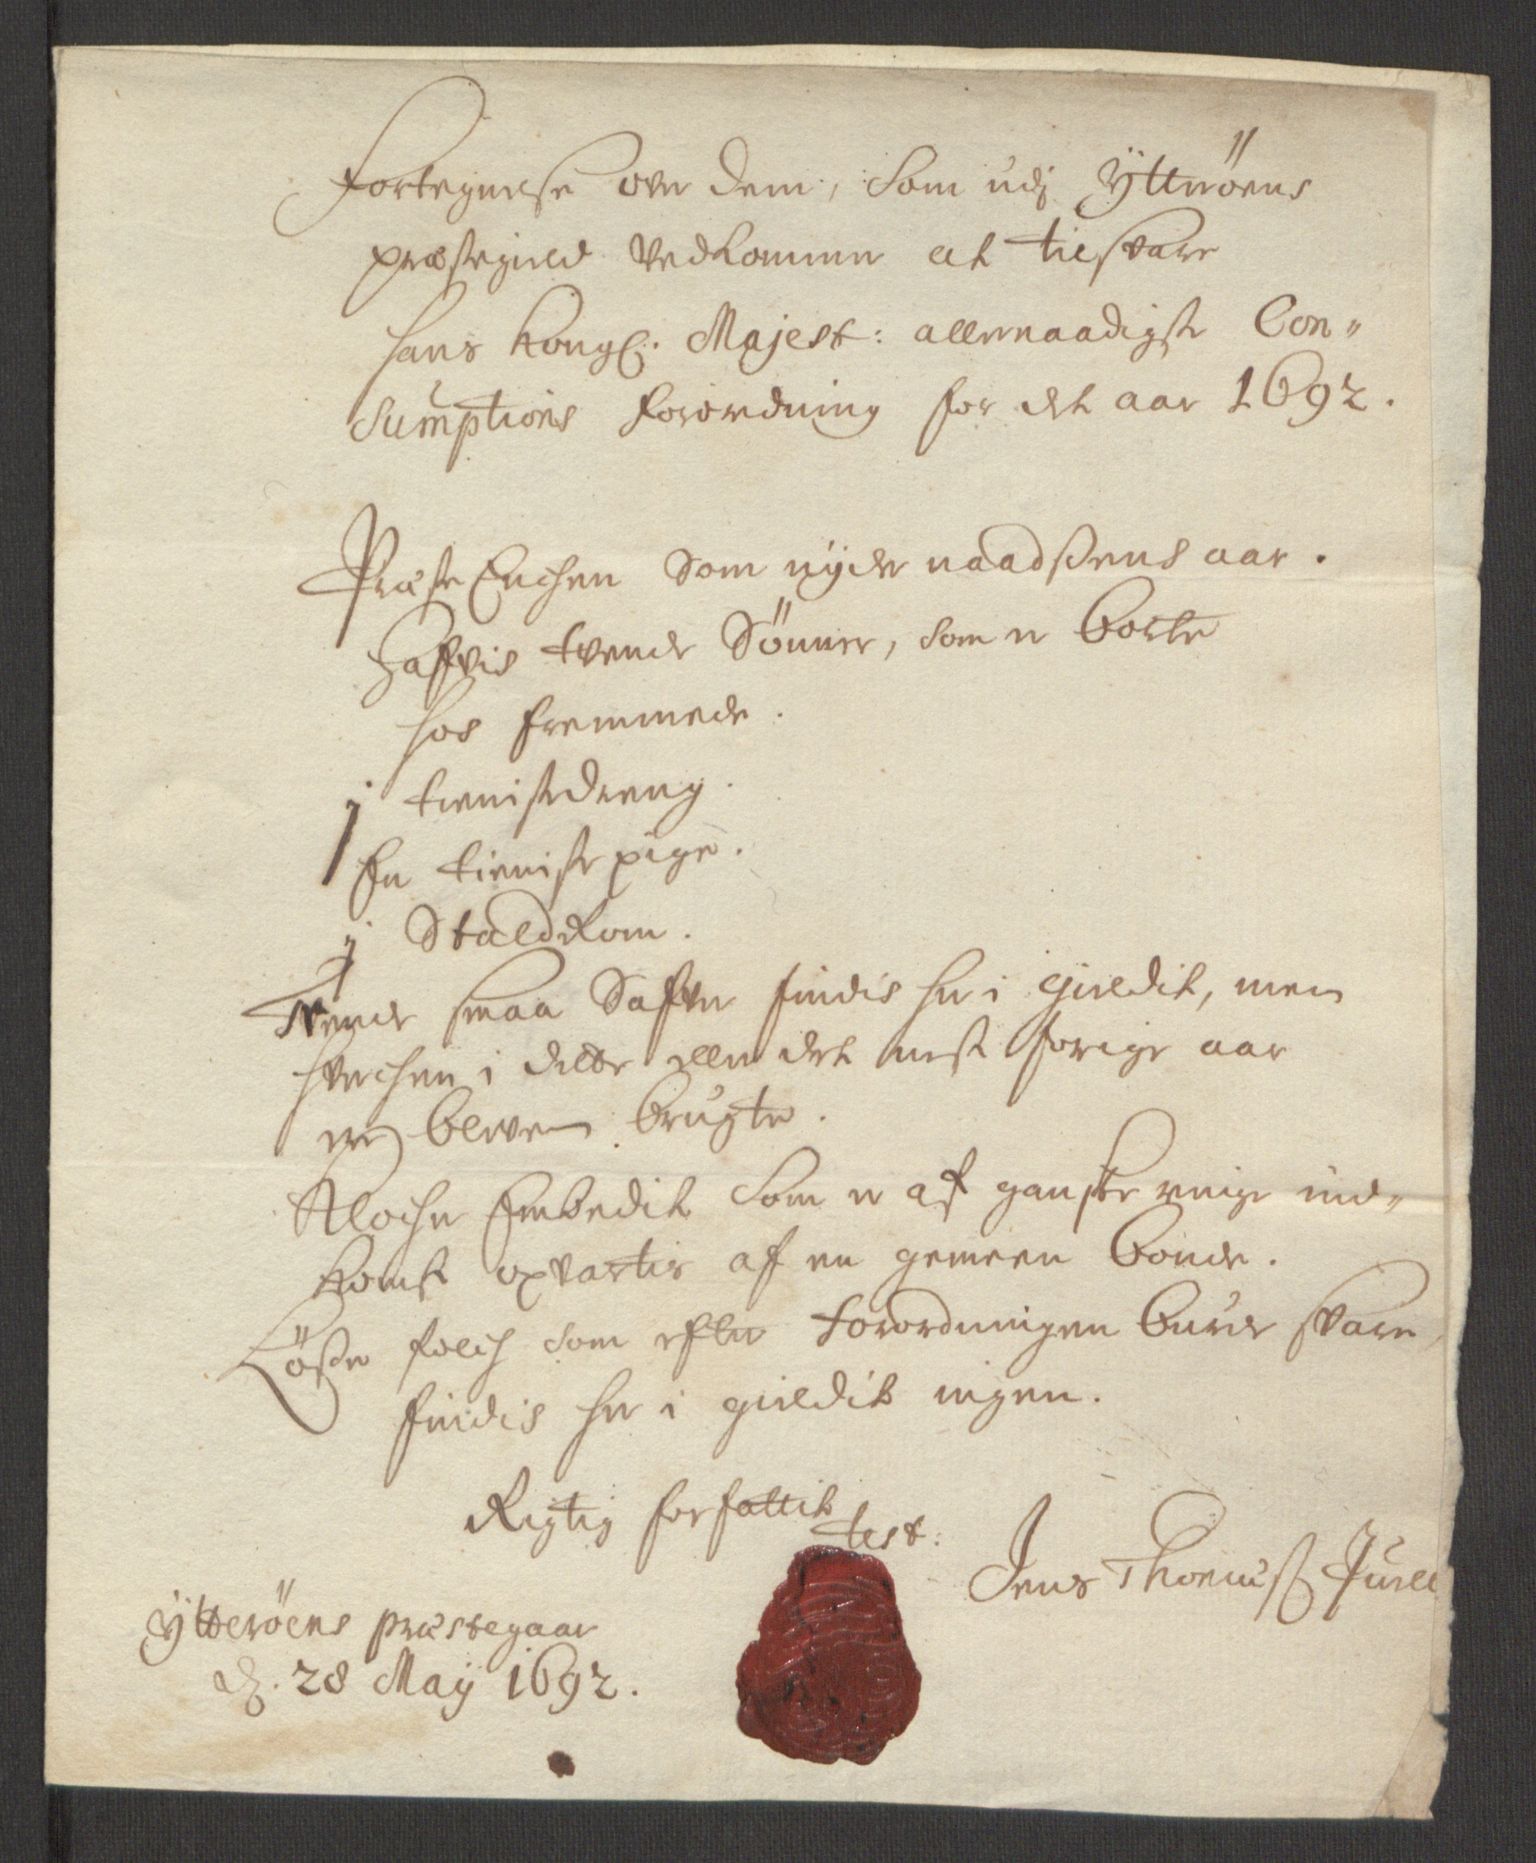 Fortegnelse over dem, som udj Ytterøens
præstegield vedkommer at tilsvare
hans Kongl. Majest: allernaadigste Con-
sumptions forordning for det aar 1692.
Præste Enchen som nyder naadsens aar.
hafvis tvende Sønner, som er borte
hos fremmede.
j tienistedreng.
En tieniste pige.
j Staldkom.
Tvende smaa Safver findis her i gieldit, men
hverchen i dette eller det nest forige aar
ere bleven brugte.
Klocher Embedit som er af ganske ringe ind-
komst opvartis af en gemeen bonde.
Løsse folch som efter forordningen burde svare,
findis her i gieldit ingen.
Rigtig forfattit
test:
Jens Thomæs. Juell
Ytterøens præstegaar
d. 28 Maÿ 1692.